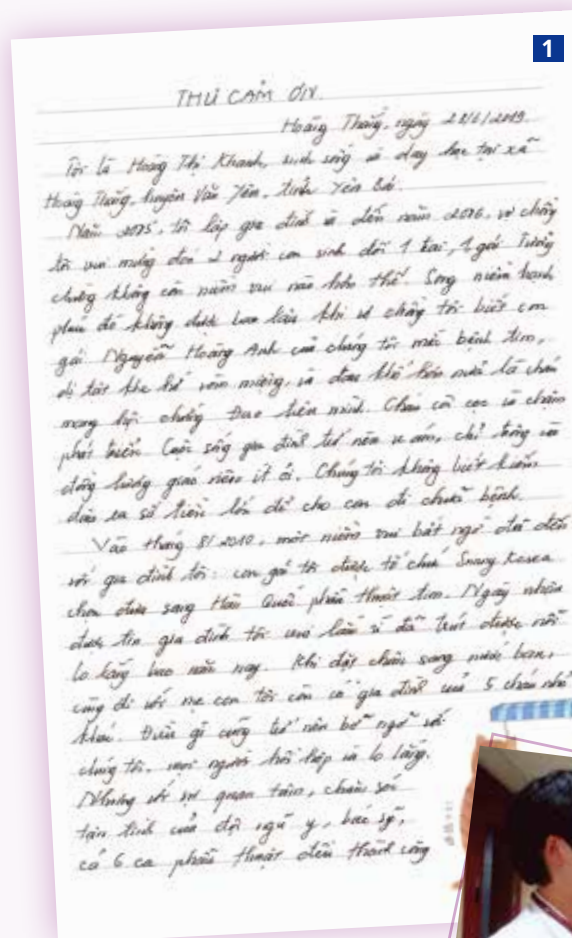 1
THƯ CẢM ƠN.
Hoàng Thắng, ngày 28/6/2019
Tôi là Hoàng Thị Khanh, sinh sống và dạy học tại xã
Hoàng Thắng, huyện Văn Yên, tỉnh Yên Bái.
Năm 2005, tôi lập gia đình và đến năm 2006, vợ chồng
tôi vui mừng đón 2 người con sinh đôi 1 trai, 1 gái. Tưởng
chừng không còn niềm vui nào hơn thế. Song niềm hạnh
phúc đó không được bao lâu khi vợ chồng tôi biết con
gái Nguyễn Hoàng Anh của chúng tôi mắc bệnh tim,
dị tật khe hở vòm miệng, và đau khổ hơn nữa là cháu
mang hội chứng Đao trên mình. Cháu còi cọc và chậm
phát triển. Cuộc sống gia đình trở nên u ám, chỉ trông vào
đồng lương giáo viên ít ỏi. Chúng tôi không biết kiếm
đâu ra số tiền lớn để cho con đi chữa bệnh.
Vào tháng 8/2010, một niềm vui bất ngờ đã đến
với gia đình tôi: con gái tôi được tổ chức Sunny Korea
chọn đưa sang Hàn Quốc phẫu thuật tim. Ngày nhận
được tin gia đình tôi vui lắm vì đã trút được nỗi
lo lắng bao năm nay. Khi đặt chân sang nước bạn,
cùng đi với mẹ con tôi còn có gia đình của 5 cháu nhỏ
khác. Điều gì cũng trở nên bỡ ngỡ với
chúng tôi, mọi người hồi hộp và lo lắng.
Nhưng với sự quan tâm, chăm sóc
tận tình của đội ngũ y, bác sỹ,
cả 6 ca phẫu thuật đều thành công